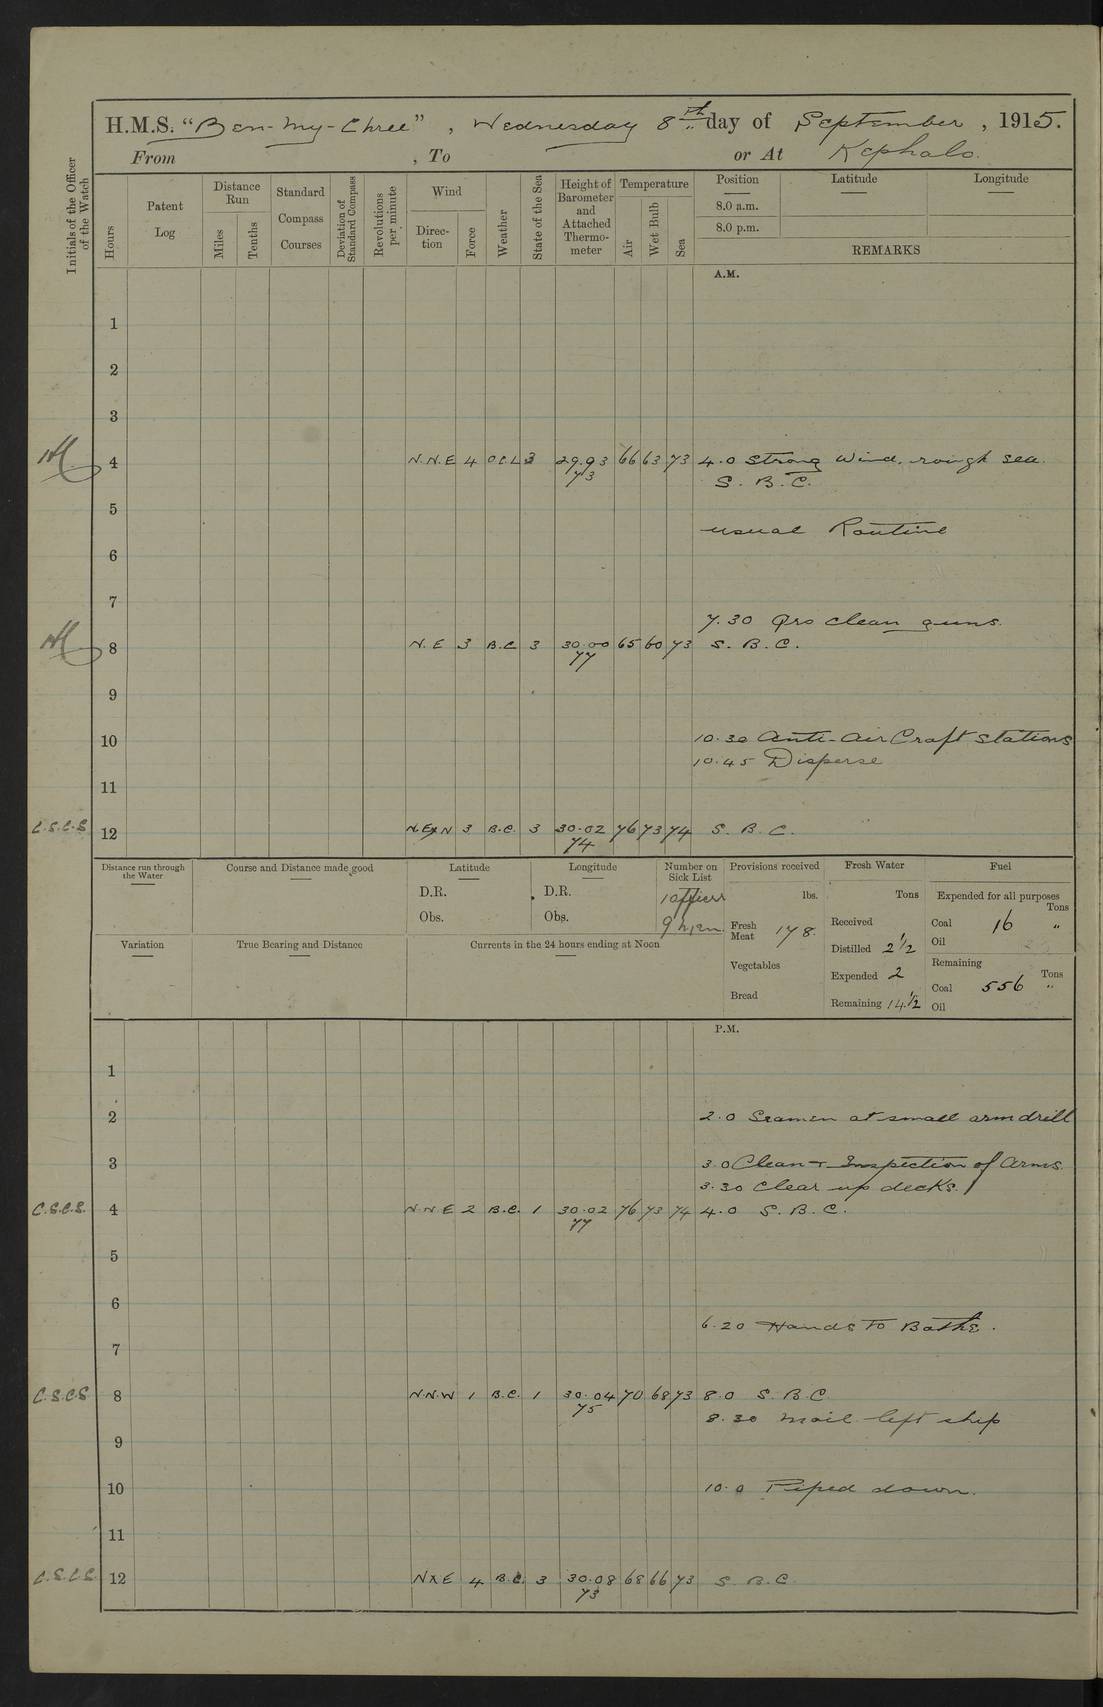 H.M.S. "Ben-my-Chree", Wednesday 8th day of September, 1915.
From , To or At Kephalo.
Initials of the Officer of the Watch
Hours
Patent Log
Distance Run
Miles
Tenths
Standard Compass Courses
Deviation of Standard Compass
Revolutions per minute
Wind
Direction
Force
Weather
State of the Sea
Height of Barometer and Attached Thermometer
Temperature
Air
Wet Bulb
Sea
Position Latitude Longitude
8.0 a.m.
8.0 p.m.
REMARKS
A.M.
1
2
3
4 N.N.E 4 O.C.L 3 29.93 66 63 73 4.0 Strong Wind, rough sea.
73 S. B. C.
5
usual Routine
6
7
7.30 Qrs clean guns.
8 N.E 3 B.C. 3 30.00 65 60 73 S. B. C.
77
9
10 10.30 Anti-Air Craft Stations
10.45 Disperse
11
C.S.C.S 12 N.ExN 3 B.C. 3 30.02 76 73 74 S. B. C.
74
Distance run through the Water
Course and Distance made good
Latitude
D.R.
Obs.
Longitude
D.R.
Obs.
Number on Sick List
1 officer
9 men
Provisions received
lbs.
Fresh Meat 178.
Vegetables
Bread
Fresh Water
Tons
Received
Distilled 2 1/2
Expended 2
Remaining 14.1/2
Fuel
Expended for all purposes
Tons
Coal 16 "
Oil
Remaining
Tons
Coal 556 "
Oil
Variation
True Bearing and Distance
Currents in the 24 hours ending at Noon
P.M.
1
2 2.0 Seamen at small arm drill
3 3.0 Clean + Inspection of Arms.
3.30 Clear up decks.
C.S.C.S. 4 N.N.E 2 B.C. 1 30.02 76 73 74 4.0 S. B. C.
77
5
6
6.20 Hands To Bathe.
7
C.S.C.S 8 N.N.W 1 B.C. 1 30.04 70 68 73 8.0 S. B. C
75 8.30 Mail left ship
9
10 10.0 Piped down.
11
C.S.C.S. 12 NxE 4 B.C. 3 30.08 68 66 73 S. B. C.
73